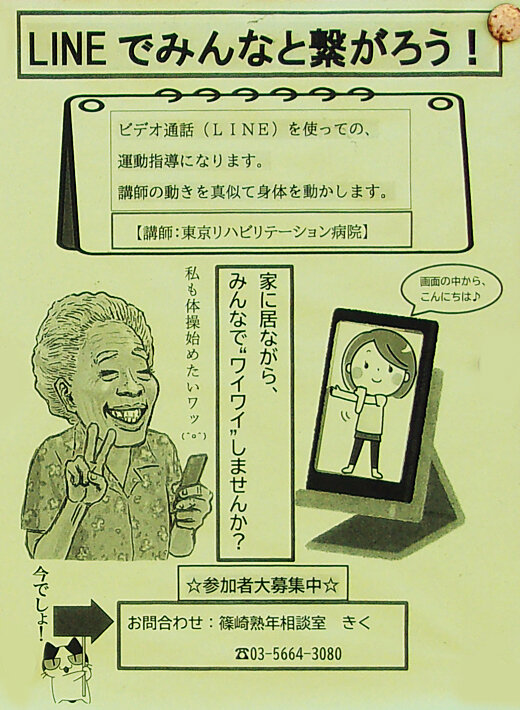 LINEでみんなと繋がろう！
ビデオ通話（ＬＩＮＥ）を使っての、
運動指導になります。
講師の動きを真似て身体を動かします。
【講師：東京リハビリテーション病院】
画面の中から、
こんにちは♪
家に居ながら、
みんなで“ワイワイ”しませんか？
私も体操始めたいワッ
(^o^)
☆参加者大募集中☆
今でしょ！
お問合わせ：篠崎熟年相談室　きく
☎03-5664-3080